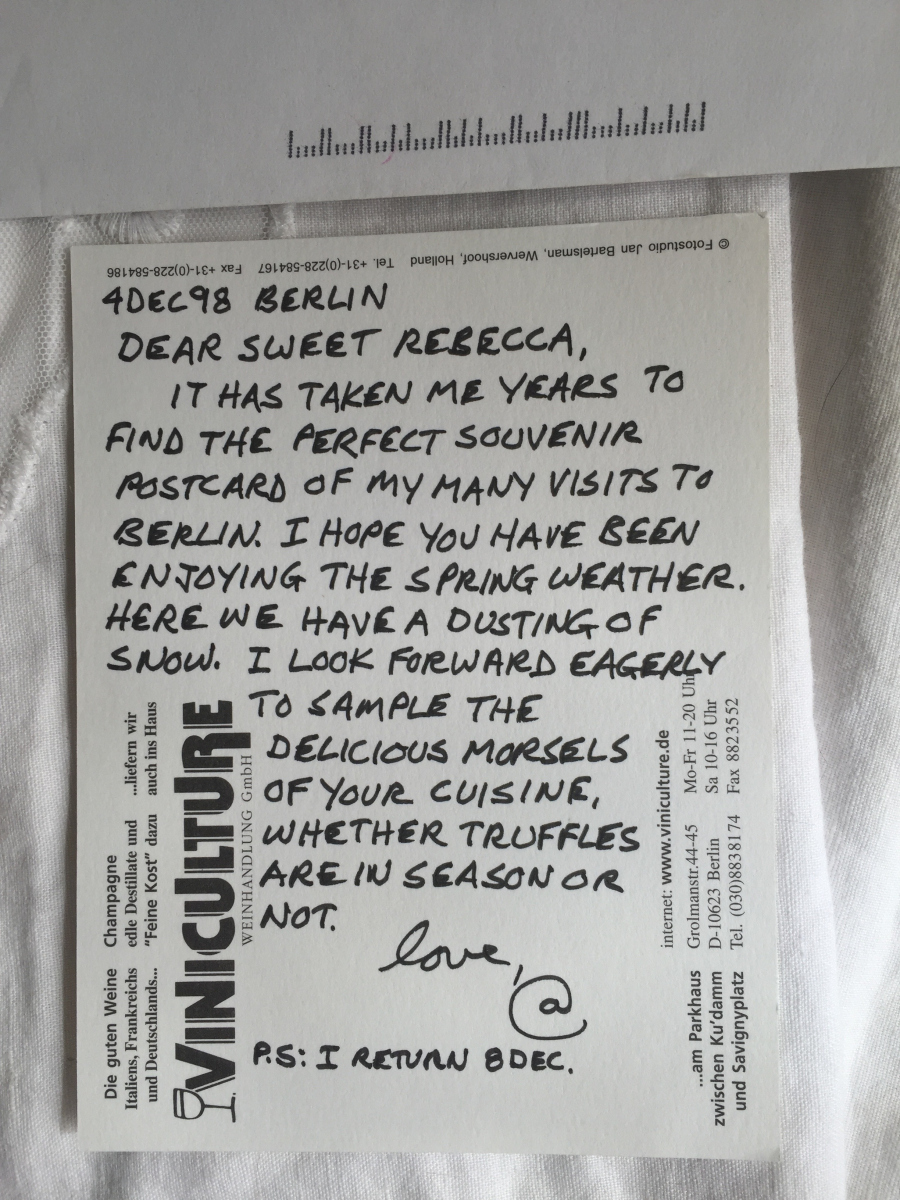 © Fotostudio Jan Bartelsman, Wervershoof, Holland Tel. +31-(0)228-584167 Fax +31-(0)228-584186
4DEC98 BERLIN
DEAR SWEET REBECCA,
IT HAS TAKEN ME YEARS TO
FIND THE PERFECT SOUVENIR
POSTCARD OF MY MANY VISITS TO
BERLIN. I HOPE YOU HAVE BEEN
ENJOYING THE SPRING WEATHER.
HERE WE HAVE A DUSTING OF
SNOW. I LOOK FORWARD EAGERLY
TO SAMPLE THE
DELICIOUS MORSELS
OF YOUR CUISINE,
WHETHER TRUFFLES
ARE IN SEASON OR
NOT.
love,
@
P.S: I RETURN 8DEC.
Die guten Weine
Italiens, Frankreichs
und Deutschlands...
Champagne
edle Destillate und
"Feine Kost" dazu
...liefern wir
auch ins Haus
VINICULTURE
WEINHANDLUNG GmbH
internet: www.viniculture.de
Grolmanstr.44-45
D-10623 Berlin
Tel. (030)8838174
Mo-Fr 11-20 Uhr
Sa 10-16 Uhr
Fax 8823552
...am Parkhaus
zwischen Ku'damm
und Savignyplatz